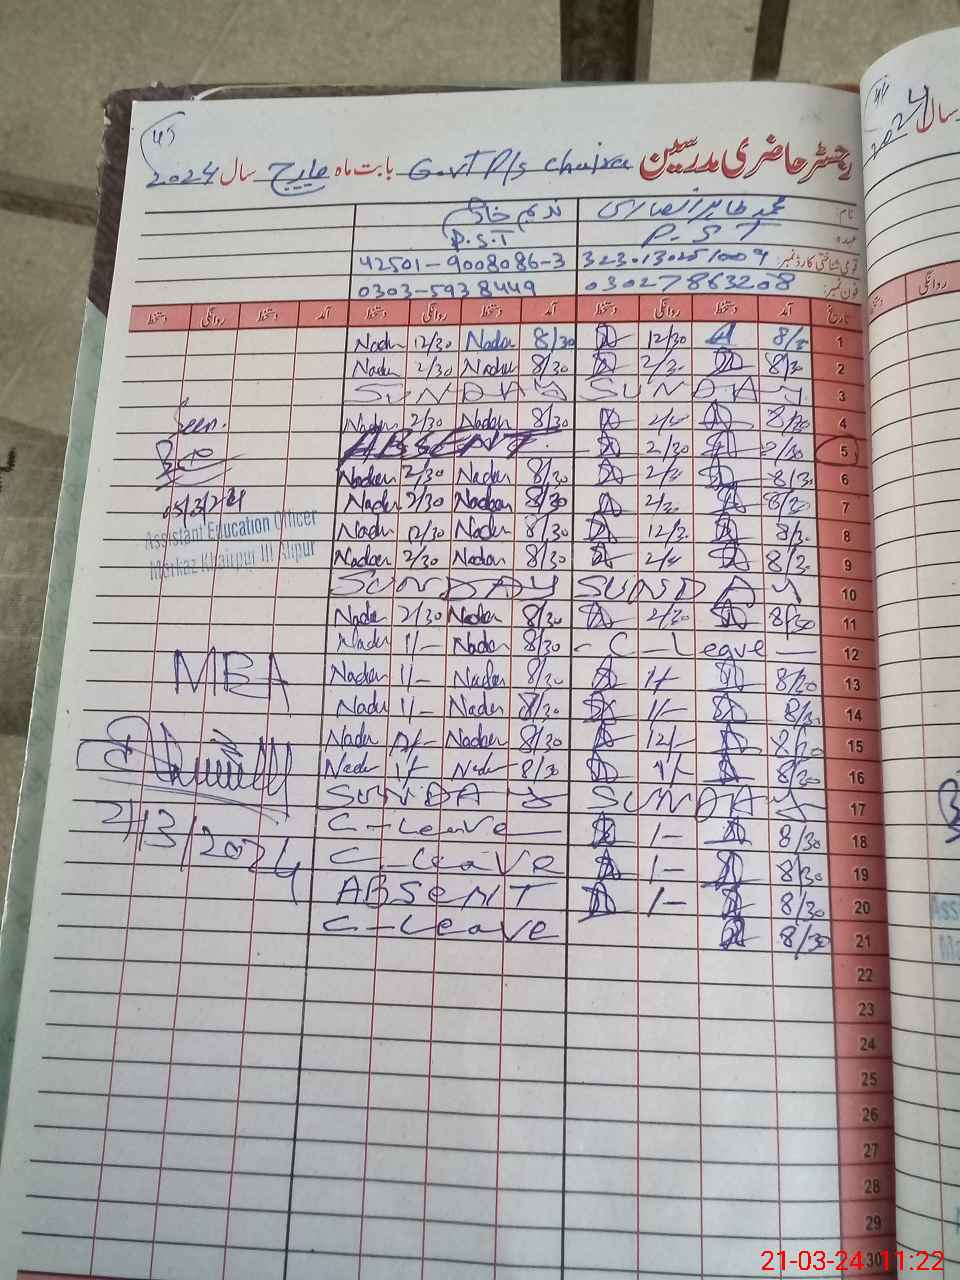 45
رجسٹر حاضری مدرسین Govt P/s بابت ماہ مارچ سال 2024
نام: محمد طاہر انصاری ندیم خان
عہدہ P.S.T P.S.T
قومی شناختی کارڈ نمبر: 42501-9008086-3
فون نمبر: 03027863208 0303-5938449
تاریخ آمد دستخط روانگی دستخط آمد دستخط روانگی دستخط آمد دستخط روانگی دستخط
1 12/30 8/30 Nader 12/30 Nader
2 8/30 2/30 8/30 Nader 2/30 Nader
3 SUNDAY SUNDAY
4 8/30 Nader 2/30 Nader
5 2/30 ABSENT
6 8/30 2/30 8/30 Nader 2/30 Nader
7 8/30 2/30 8/30 Nader 2/30 Nader
8 8/30 12/30 8/30 Nader 12/30 Nader
9 8/30 8/30 Nader 2/30 Nader
10 SUNDAY SUNDAY
11 8/30 2/30 8/30 Nader 2/30 Nader
12 - C - Leave - 8/30 Nader 1/- Nader
13 8/30 1/- 8/30 Nader 1/- Nader
14 8/30 1/- 8/30 Nader 1/- Nader
15 8/30 12/- 8/30 Nader 12/- Nader
16 8/30 1/- 8/30 Nader 1/- Nader
17 SUNDAY SUNDAY
18 8/30 1- C-Leave
19 8/30 1- C-Leave
20 8/30 1- ABSENT
21 8/30 C-Leave
22
23
24
25
26
27
28
29
30
Seen.
05/3/24
Assistant Education Officer
Markaz Khairpur III Alipur
MEA
21/3/2024
44
سال 2024
روانگی
21-03-24 11:22